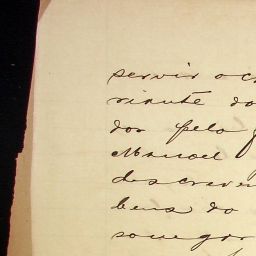 servir o c
riante do
dor pelo f
Manoel
descrever
bens do
sonegar